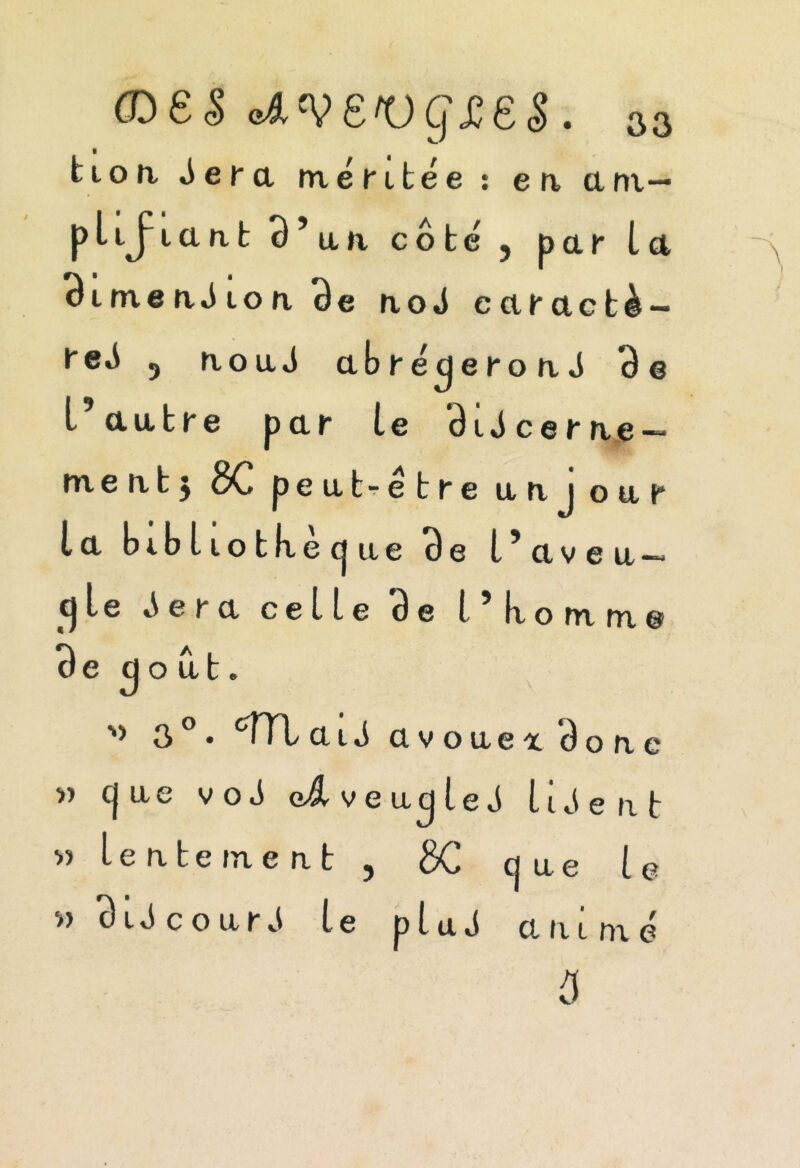 DES AVEUGLES. 33
tion sera méritée : en am-
plifiant d’un côté, par la
dimension de nos caractè-
res, nous abrégerons de
l’autre par le discerne-
ment; & peut-être un jour
la bibliothèque de l’aveu-
gle sera celle de l’homme
de goût.
» 3°. Mais avouez donc
» que vos Aveugles lisent
» lentement, & que le
» discours le plus animé
3